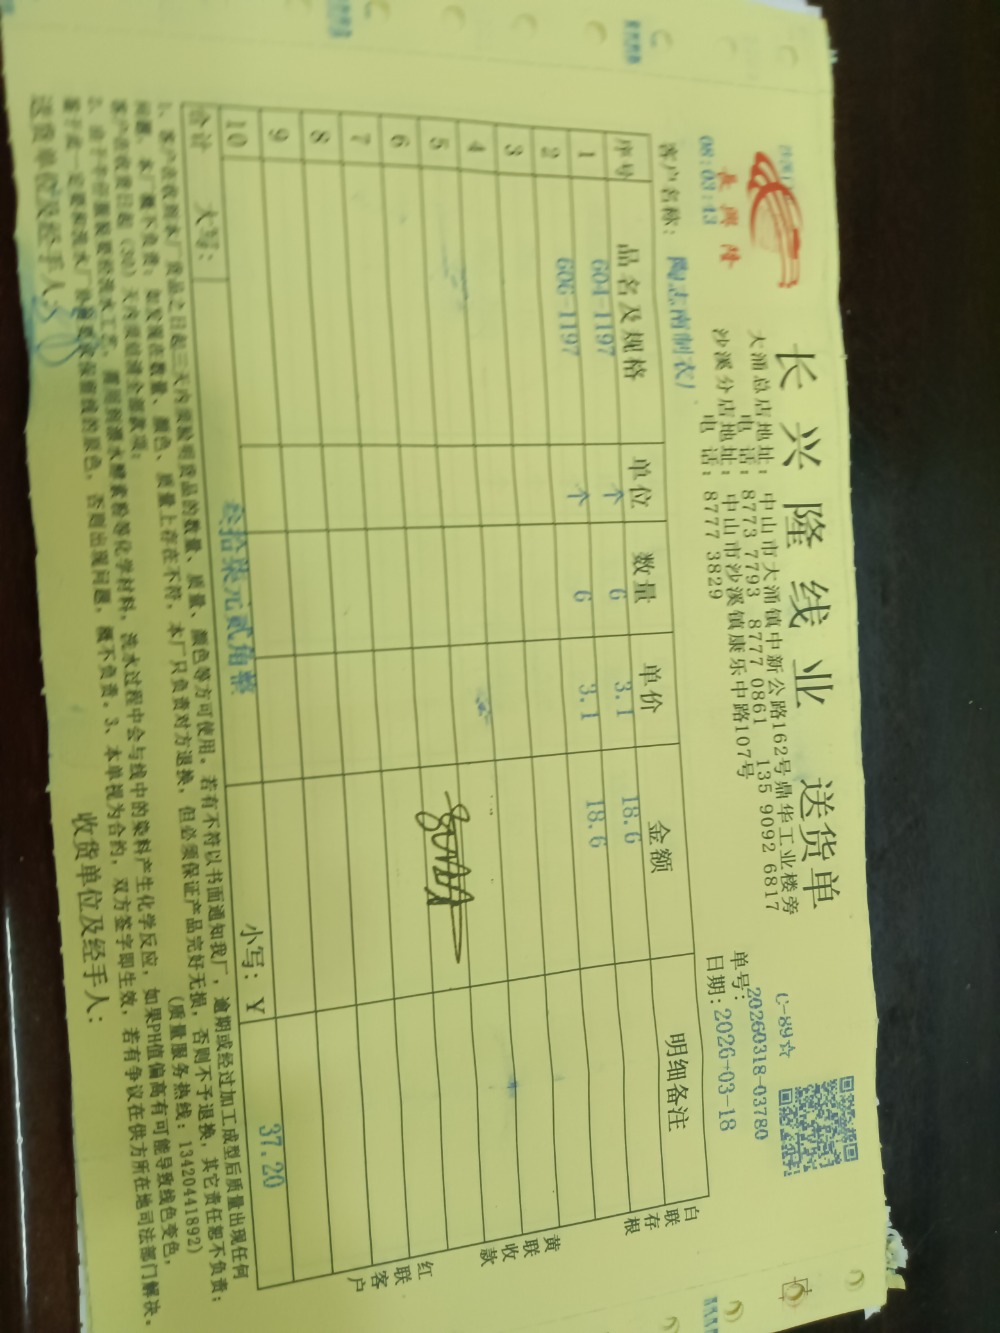 长兴隆线业 送货单
長興隆
08:03:43
C-89☆
大涌总店地址：中山市大涌镇中新公路162号鼎华工业楼旁
电话：8773 7793 8777 0861 135 9092 6817
沙溪分店地址：中山市沙溪镇康乐中路107号
电话：8777 3829
单号：20260318-03780
日期：2026-03-18
客户名称：陶志南制衣厂
序号 品名及规格 单位 数量 单价 金额 明细备注
1 604-1197 个 6 3.1 18.6
2 606-1197 个 6 3.1 18.6
3
4
5
6
7
8
9
10
合计 大写：叁拾柒元贰角整 小写：¥ 37.20
白联存根
黄联收款
红联客户
1、客户在收到本厂货品之日起三天内须验明货品的数量、质量、颜色等方可使用。若有不符以书面通知我厂，逾期或经过加工成型后质量出现任何
问题，本厂概不负责；如发现在数量、颜色、质量上存在不符，本厂只负责对方退换，但必须保证产品完好无损，否则不予退换，其它责任恕不负责；
客户在收货日起（30）天内须结清全部款项；（质量服务热线：13420441892）
2、由于牛仔服装要经洗水工艺，需用到漂水酵素粉等化学材料，洗水过程中会与线中的染料产生化学反应，如果PH值偏高有可能导致线色变色，
鉴于此一定要和洗水厂协商要求保留线的原色，否则出现问题，概不负责。3、本单视为合约，双方签字即生效，若有争议在供方所在地司法部门解决。
送货单位及经手人： 收货单位及经手人：